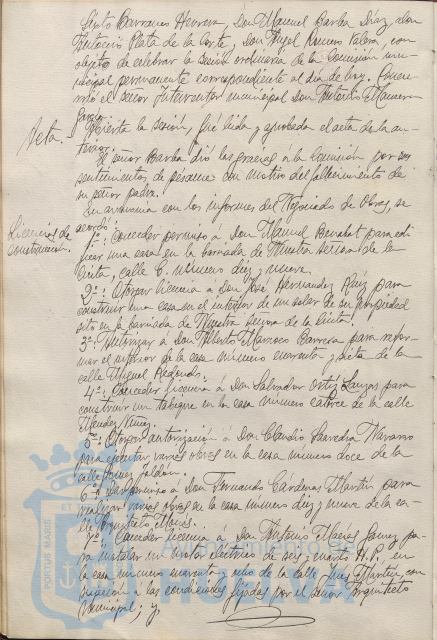 Sixto Barranco Herrera, Don Manuel Barba Díaz, don
Antonio Plata de la Corte, Don Angel Romero Valera, con
objeto de celebrar la sesión ordinaria de la Comisión mu-
nicipal permanente correspondiente al dia de hoy. Concu-
rrió el señor Interventor municipal Don Antonio
García.
Acta. Abierta la sesión, fué leida y aprobada el acta de la an-
terior.
El señor Barba dió las gracias á la Comisión por sus
sentimientos de pésame con motivo del fallecimiento de
su señor padre.
Licencias de
construcción.
En armonia con los informes del Negociado de Obras, se
acordó:
1º: Conceder permiso á Don Manuel para edi-
ficar una casa en la barriada de Nuestra Señora de la
Cinta, calle C. número diez y nueve.
2º: Otorgar licencia a Don José Hernandez Ruiz para
construir una casa en el interior de un solar de su propiedad
sito en la barriada de Nuestra Señora de la Cinta.
3º: Autorizar á Don Alberto Marroco Barrera para refor-
mar el interior de la casa número cuarenta y siete de la
calle Miguel Redondo.
4º: Conceder licencia á Don Salvador Ortiz para
construir un tabique en la casa número catorce de la calle
Mendez Nuñez.
5º: Otorgar autorización á Don Claudio Saavedra Navarro
para ejecutar varias obras en la casa número doce de la
calle
6º: Dar permiso á Don Fernando Cárdenas Martín para
realizar varias obras de la casa número diez y nueve de la ca-
lle
7º: Conceder licencia á Don Antonio Macías pa-
ra instalar un motor eléctrico de seis cuartos H.P. en
la casa número cuarenta y ocho de la calle con
sujeción á las condiciones fijadas por el señor Arquitecto
Municipal; y
PORTUS MARIS
HUELVA